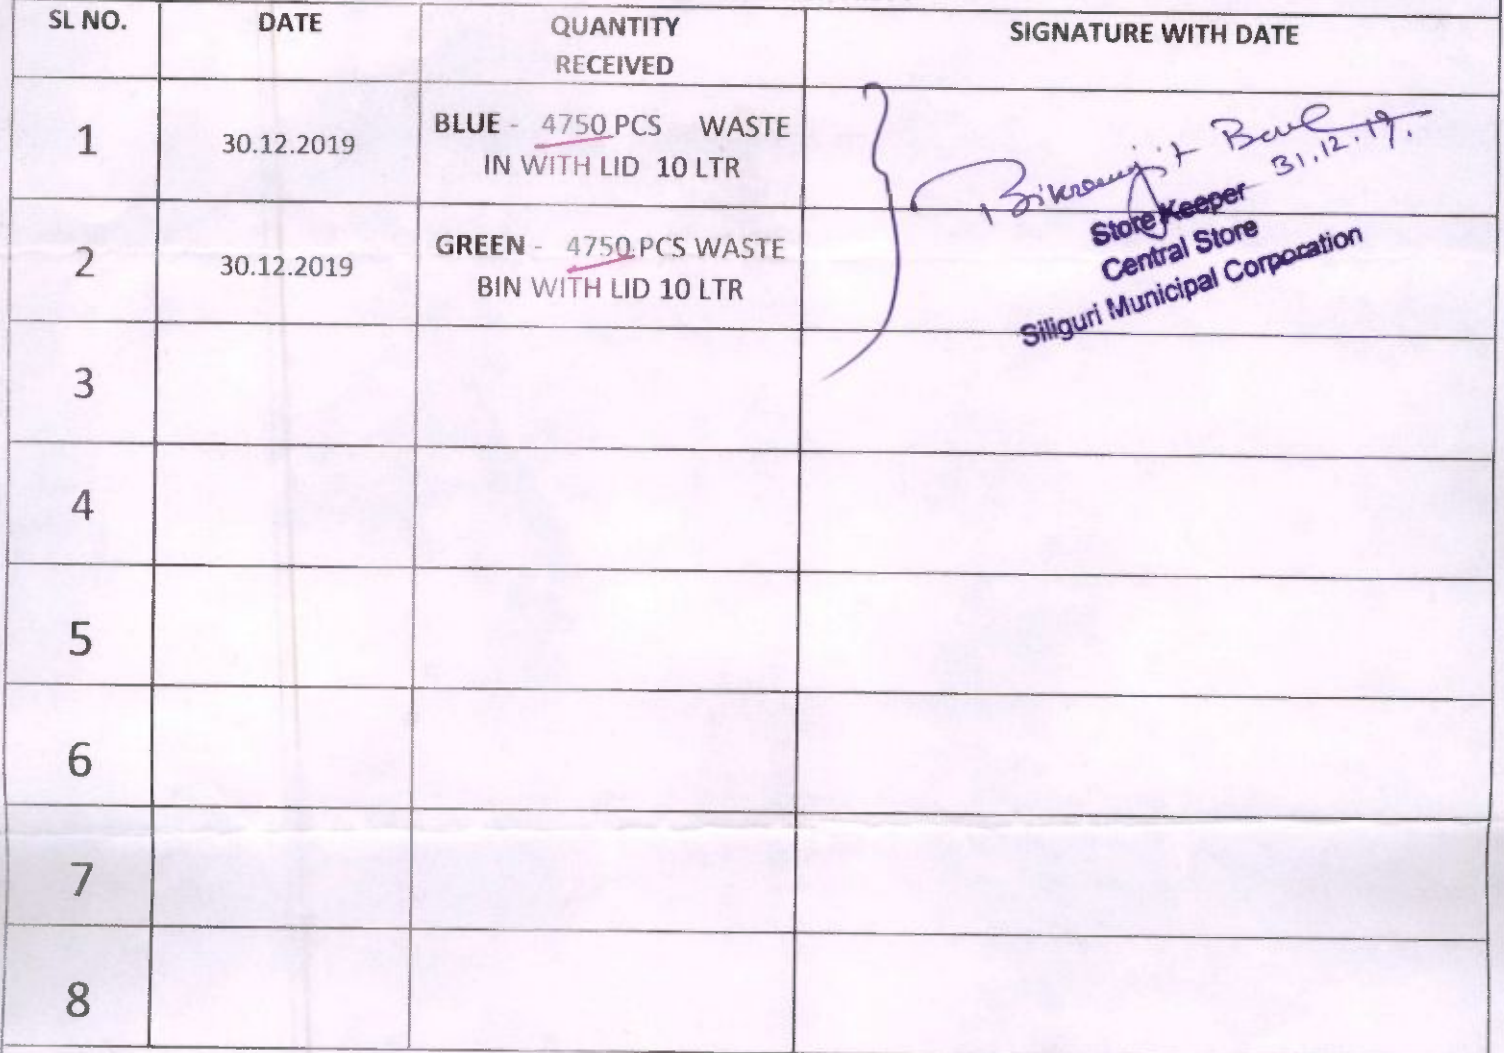 SL NO. DATE QUANTITY RECEIVED SIGNATURE WITH DATE
1 30.12.2019 BLUE - 4750 PCS WASTE
IN WITH LID 10 LTR
Bikramjit
31.12.19.
Store Keeper
Central Store
Siliguri Municipal Corporation
2 30.12.2019 GREEN - 4750 PCS WASTE
BIN WITH LID 10 LTR
3
4
5
6
7
8